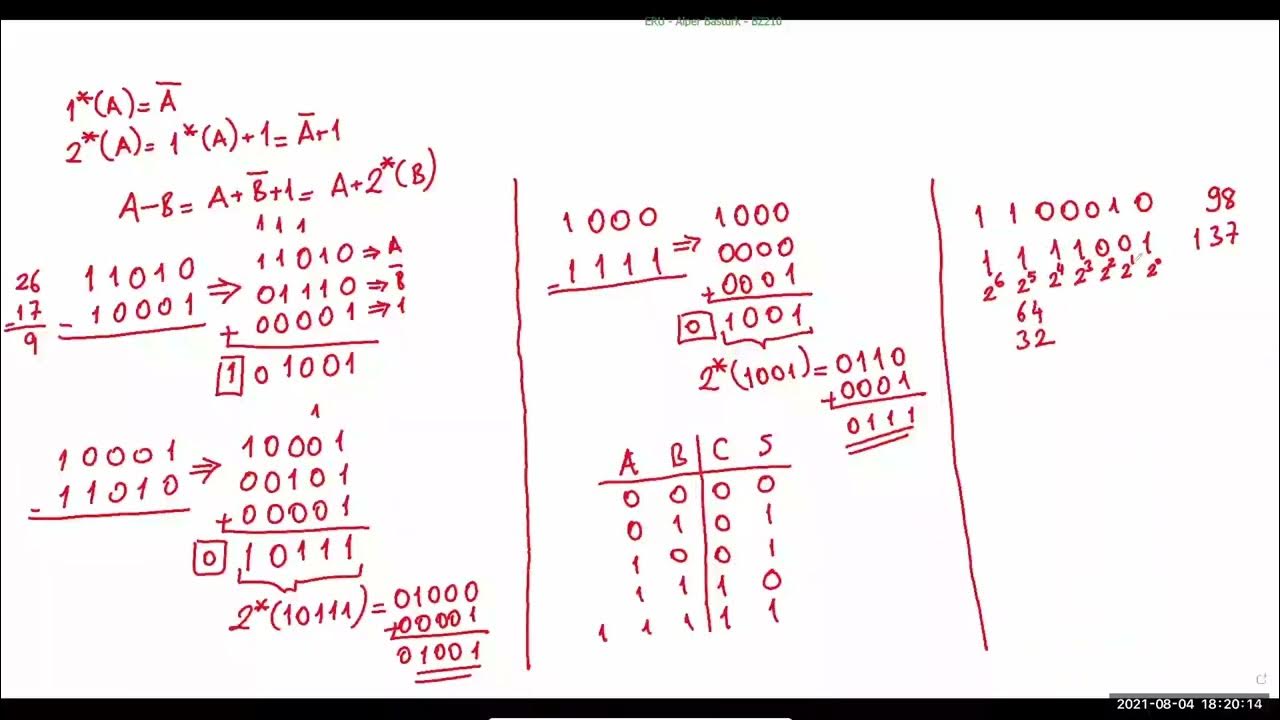 ERU - Alper Basturk - BZ210
1*(A)= A̅
2*(A)= 1*(A)+1= A̅+1
A-B= A+B̅+1= A+2*(B)
1 1 1
26
17
- 9
1 1 0 1 0
- 1 0 0 0 1
⇒
1 1 0 1 0 ⇒ A
0 1 1 1 0 ⇒ B̅
+ 0 0 0 0 1 ⇒ 1
1 0 1 0 0 1
1 0 0 0 1
- 1 1 0 1 0
⇒
1
1 0 0 0 1
0 0 1 0 1
+ 0 0 0 0 1
0 1 0 1 1 1
2*(10111)= 01000
+ 00001
01001
1 0 0 0
- 1 1 1 1
⇒
1000
0000
+ 0001
0 1001
2*(1001)= 0110
+ 0001
0111
A B C S
0 0 0 0
0 1 0 1
1 0 0 1
1 1 1 0
1 1 1 1 1
1 1 0 0 0 1 0 98
1 1 1 1 0 0 1 137
2⁶ 2⁵ 2⁴ 2³ 2² 2¹ 2⁰
64
32
2021-08-04 18:20:14